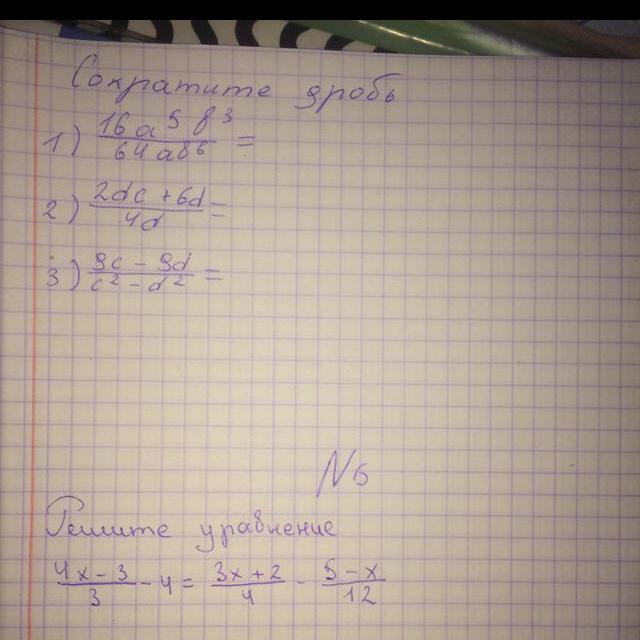 Сократите дробь
1) 16a⁵b³ / 64ab⁶ =
2) 2dc + 6d / 4d =
3) 9c - 9d / c² - d² =
№6
Решите уравнение
4x - 3 / 3 - 4 = 3x + 2 / 4 - 5 - x / 12